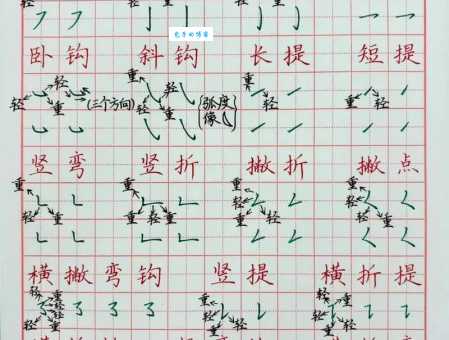 包子的博客
卧钩 斜钩 长提 短提
轻 重 重 重
轻 重 (三个方向) 轻 重 弧度像 轻 轻
竖弯 竖折 撇折 撇点
重 重 重 重
轻 重 轻 轻 重 轻 重 轻 重
横撇弯钩 竖提 横折提
轻 重 轻 轻 重
轻 重 轻 重 轻